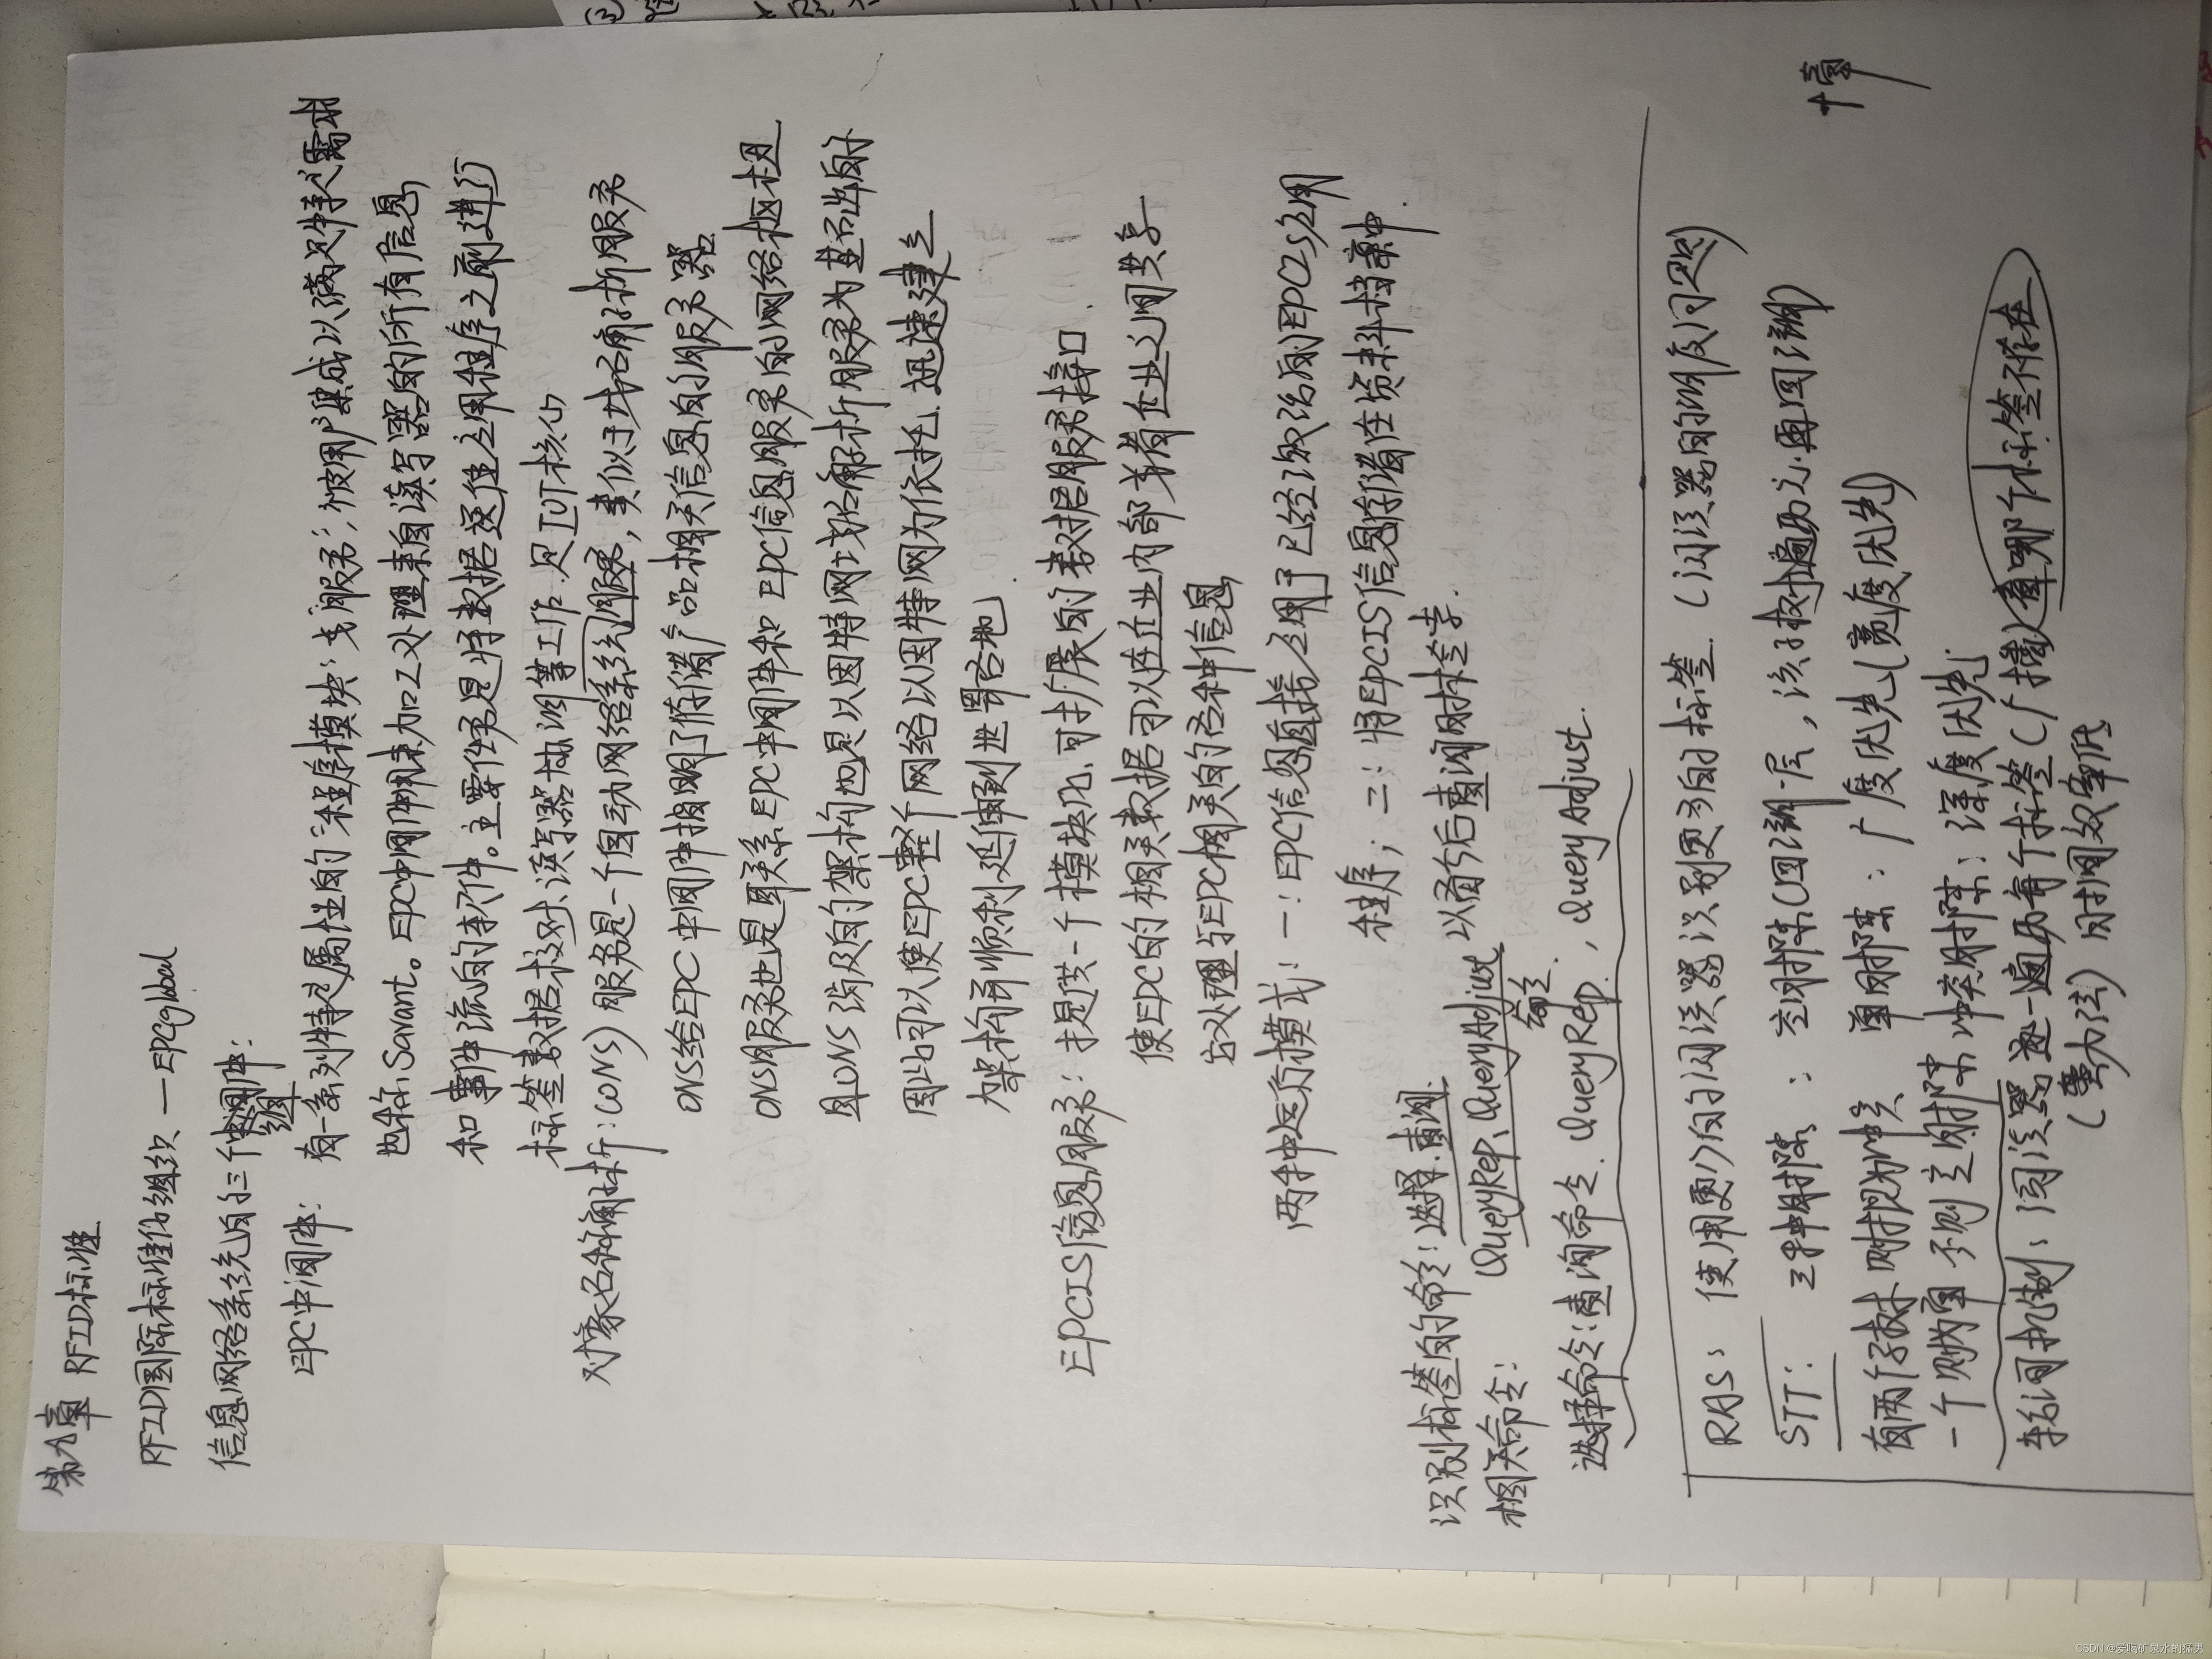 第九章 RFID标准
RFID国际标准化组织 — EPCglobal
信息网络系统的三个组件:
EPC中间件: 有一系列特定属性的"程序模块"或"服务",被用户集成以满足特定需求
也称Savant。EPC中间件来加工处理来自读写器的所有信息
和事件流的软件。主要任务是将数据送往应用程序之前进行
标签数据校对、读写器协调等工作.是IOT核心
对象名称解析:(ONS) 服务是一个自动网络系统服务,类似于域名解析服务
ONS给EPC中间件指明了存储产品相关信息的服务器
ONS服务也是联系EPC中间件和EPC信息服务的网络枢纽.
且ONS涉及的架构也是以因特网域名解析服务为基础的
因此可以使EPC整个网络以因特网为依托.迅速建立
架构并顺利延伸到世界各地.
EPCIS信息服务: 提供一个模块化.可扩展的数据服务接口.
使EPC的相关数据可以在企业内部或者企业之间共享
它处理与EPC相关的各种信息
两种运行模式: 一:EPC信息直接应用于已经激活的EPCIS应用
程序; 二:将EPCIS信息存储在资料档案中.
识别标签的命令: 选择.查询. 以备今后查询时检索.
相关命令: QueryRep、QueryAdjust
命令.
选择命令:查询命令. QueryRep, QueryAdjust.
RAS: 使用更少的阅读器识别更多的标签. (阅读器的调度问题)
十章
STT: 三种时隙: 空时隙(回溯一层,该子树遍历之.再回溯)
有两个子树.则视为冲突 单时隙: 广度优先(宽度优先)
一个则为单 否则空时隙 冲突时隙: 深度优先.
轮询机制: 阅读器逐一遍历每个标签(广播查哪个标签不存在
(暴力法) 时间效率低
CSDN @爱喝矿泉水的猛男